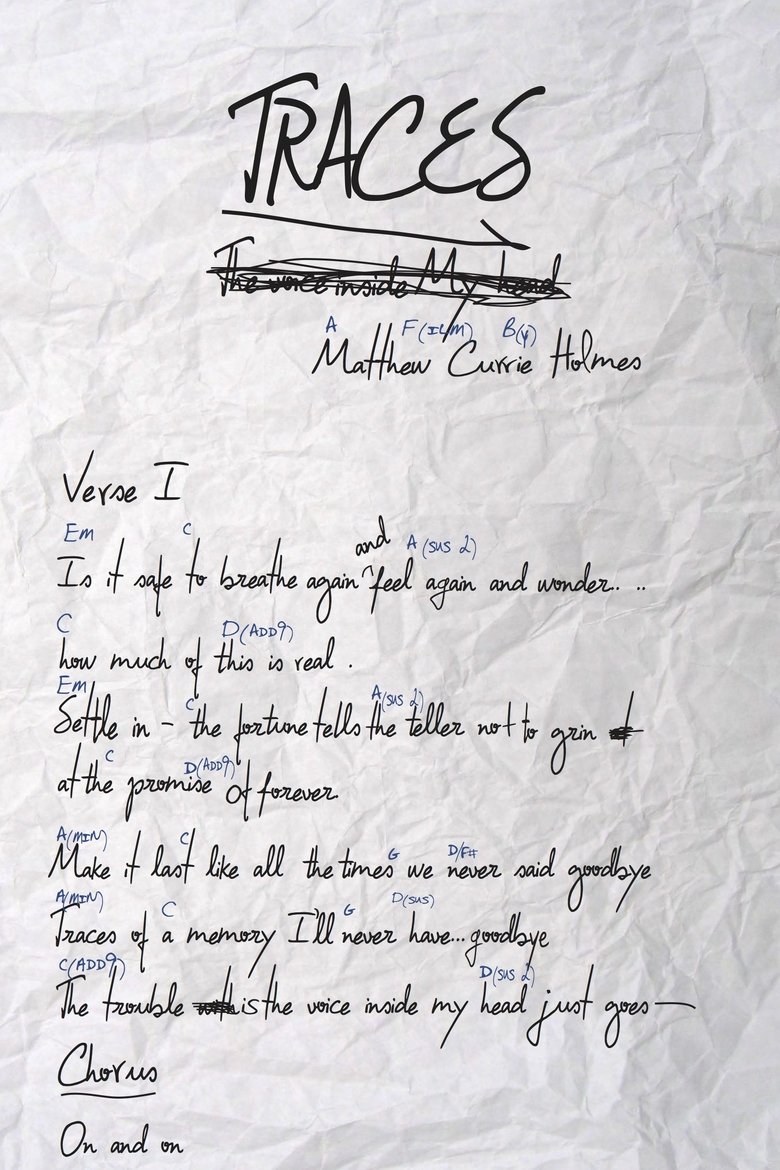 TRACES
The voice inside My head
A F(ILM) B(Y)
Matthew Currie Holmes
Verse I
Em C and A(SUS 2)
Is it safe to breathe again ^ feel again and wonder.. ..
C D(ADD9)
how much of this is real .
Em C A(SUS 2)
Settle in - the fortune tells the teller not to grin
C D(ADD9)
at the promise of forever.
A(MIN) C G D/F#
Make it last like all the times we never said goodbye
A(MIN) C G D(SUS)
Traces of a memory I'll never have... goodbye
C(ADD9) D(SUS 2)
The trouble is the voice inside my head just goes —
Chorus
On and on